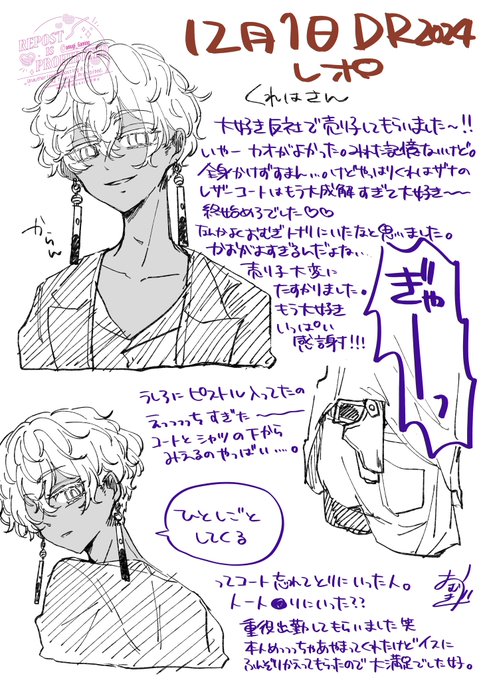 REPOST
IS
PROHIBITED
12月1日 DR2024
レポ
くれはさん
大好き反社で売り子してもらいました〜!!
いやー カオがよかった。みれた記憶ないけど。
全身かけずすまん…。けどやっぱりくれはザナの
レザーコートはもう大成解すぎて大好き〜〜
終始めろでした♡♡
なんかよくおむぎトナリにいたなと思いました。
かおがよすぎるんだよな…
売り子大変に
たすかりました。
もう大好き
いっぱい
感謝!!!
からん
ぎゃーーッ
うしろにピストル入ってたの
えっっっっちすぎた〜〜
コートとシャツの下から
みえるのやっばい…。
ひとしごと
してくる
ってコート忘れてとりにいった人。
ハート●りにいった??
重役出勤してもらいました 笑
本人めっっっちゃあやまってくれたけどイスに
ふんぞりかえってもらったので大満足でした好。
おむぎ